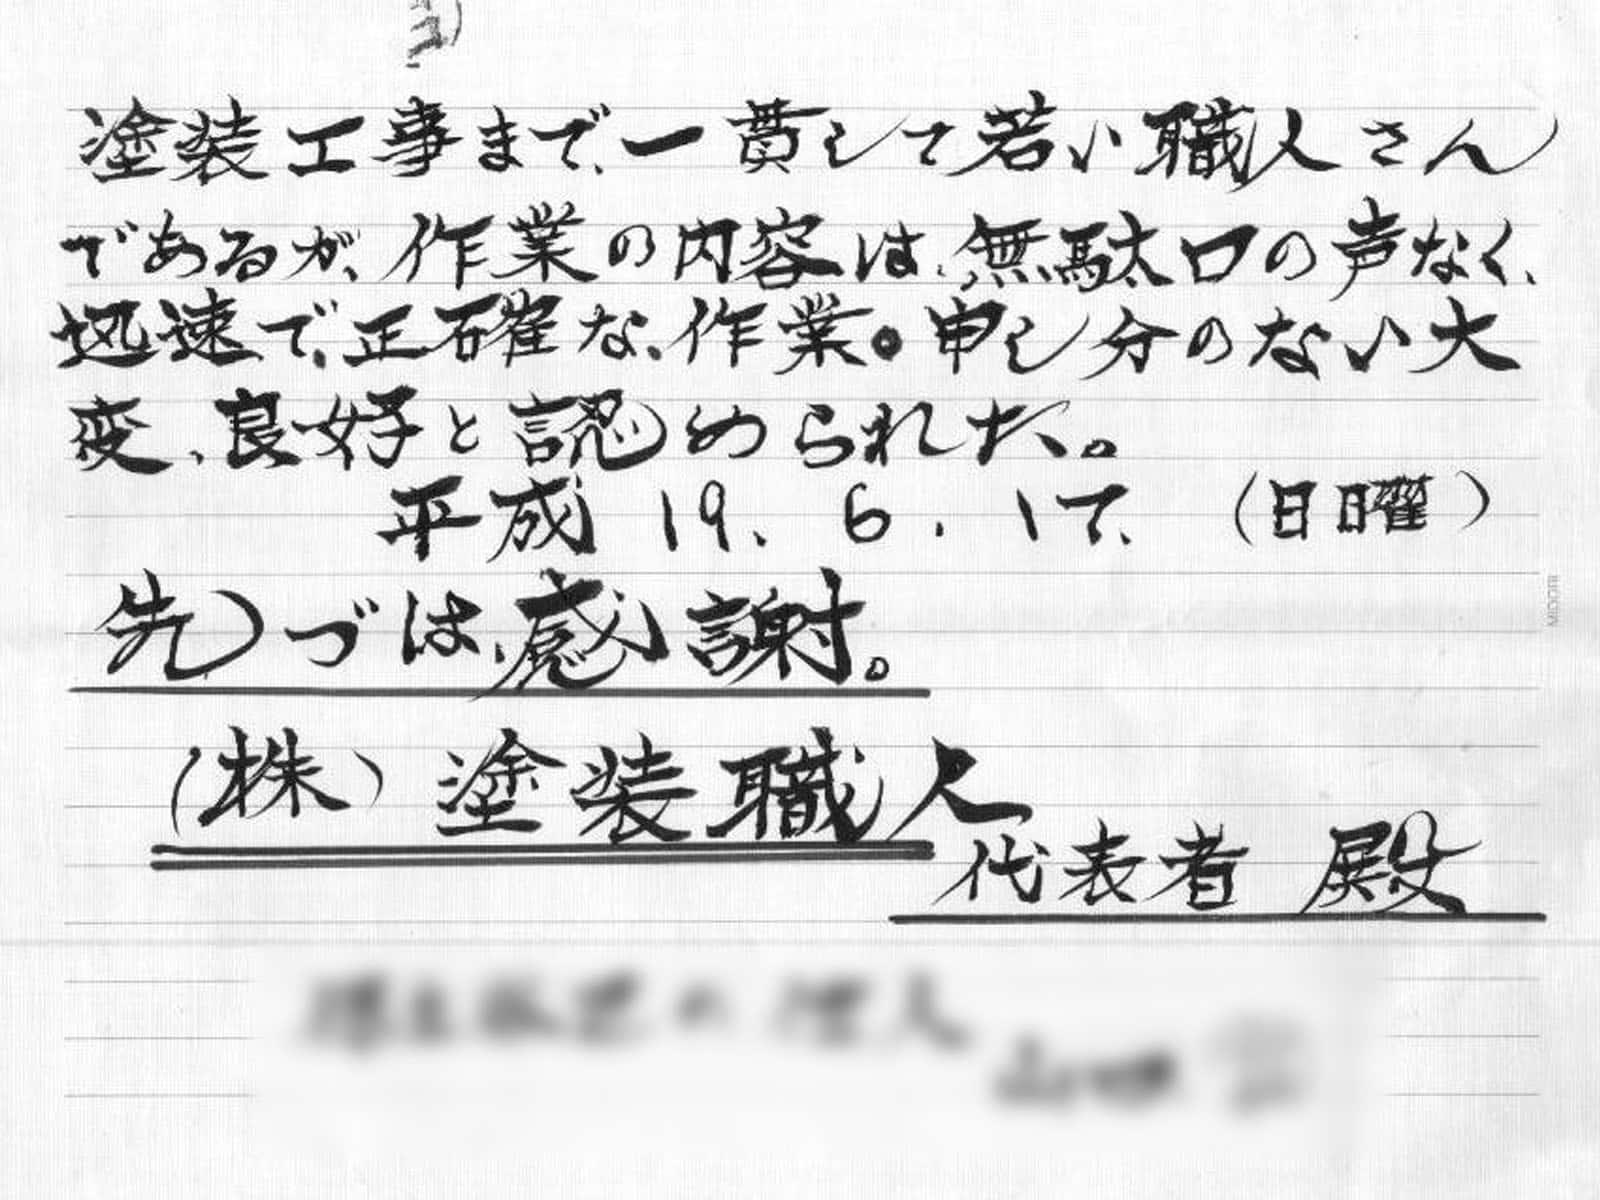 塗装工事まで、一貫して若い職人さん
であるが、作業の内容は、無駄口の声なく、
迅速で、正確な、作業。申し分のない大
変、良好と認められた。
平成 19. 6. 17. (日曜)
先づは、感謝。
(株) 塗装職人
代表者 殿